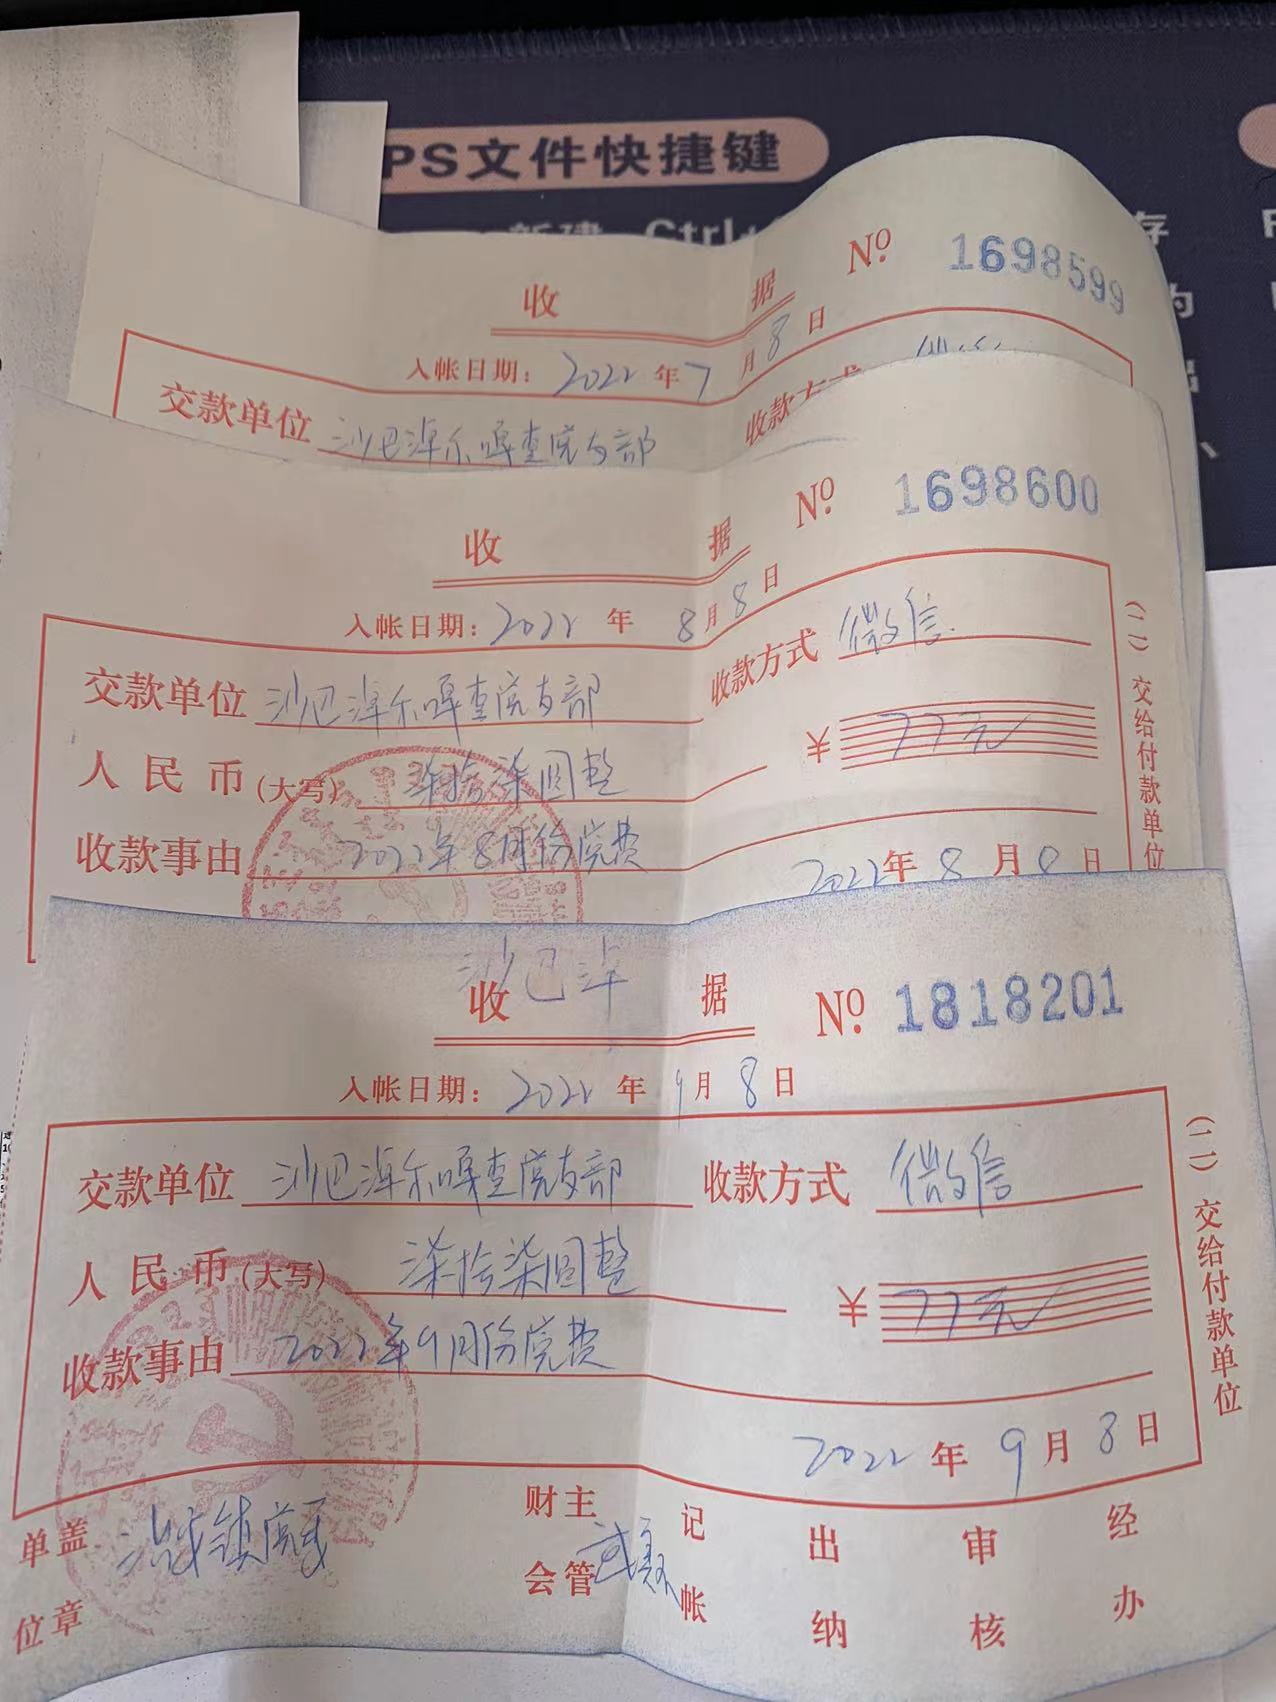 PS文件快捷键
新建 Ctrl+
存
收 据 № 1698599
入帐日期: 2022 年 7 月 8 日
交款单位 沙巴淖尔嘎查党支部 收款方式 微信
收 据 № 1698600
入帐日期: 2022 年 8 月 8 日
交款单位 沙巴淖尔嘎查党支部 收款方式 微信
人民币(大写) 柒拾柒圆整 ¥ 77元
收款事由 2022年8月份党费
2022年 8 月 8 日
(二)交给付款单位
沙巴淖
收 据 № 1818201
入帐日期: 2022 年 9 月 8 日
交款单位 沙巴淖尔嘎查党支部 收款方式 微信
人民币(大写) 柒拾柒圆整 ¥ 77元
收款事由 2022年9月份党费
2022 年 9 月 8 日
(二)交给付款单位
单位盖章 财会主管 记帐 出纳 审核 经办